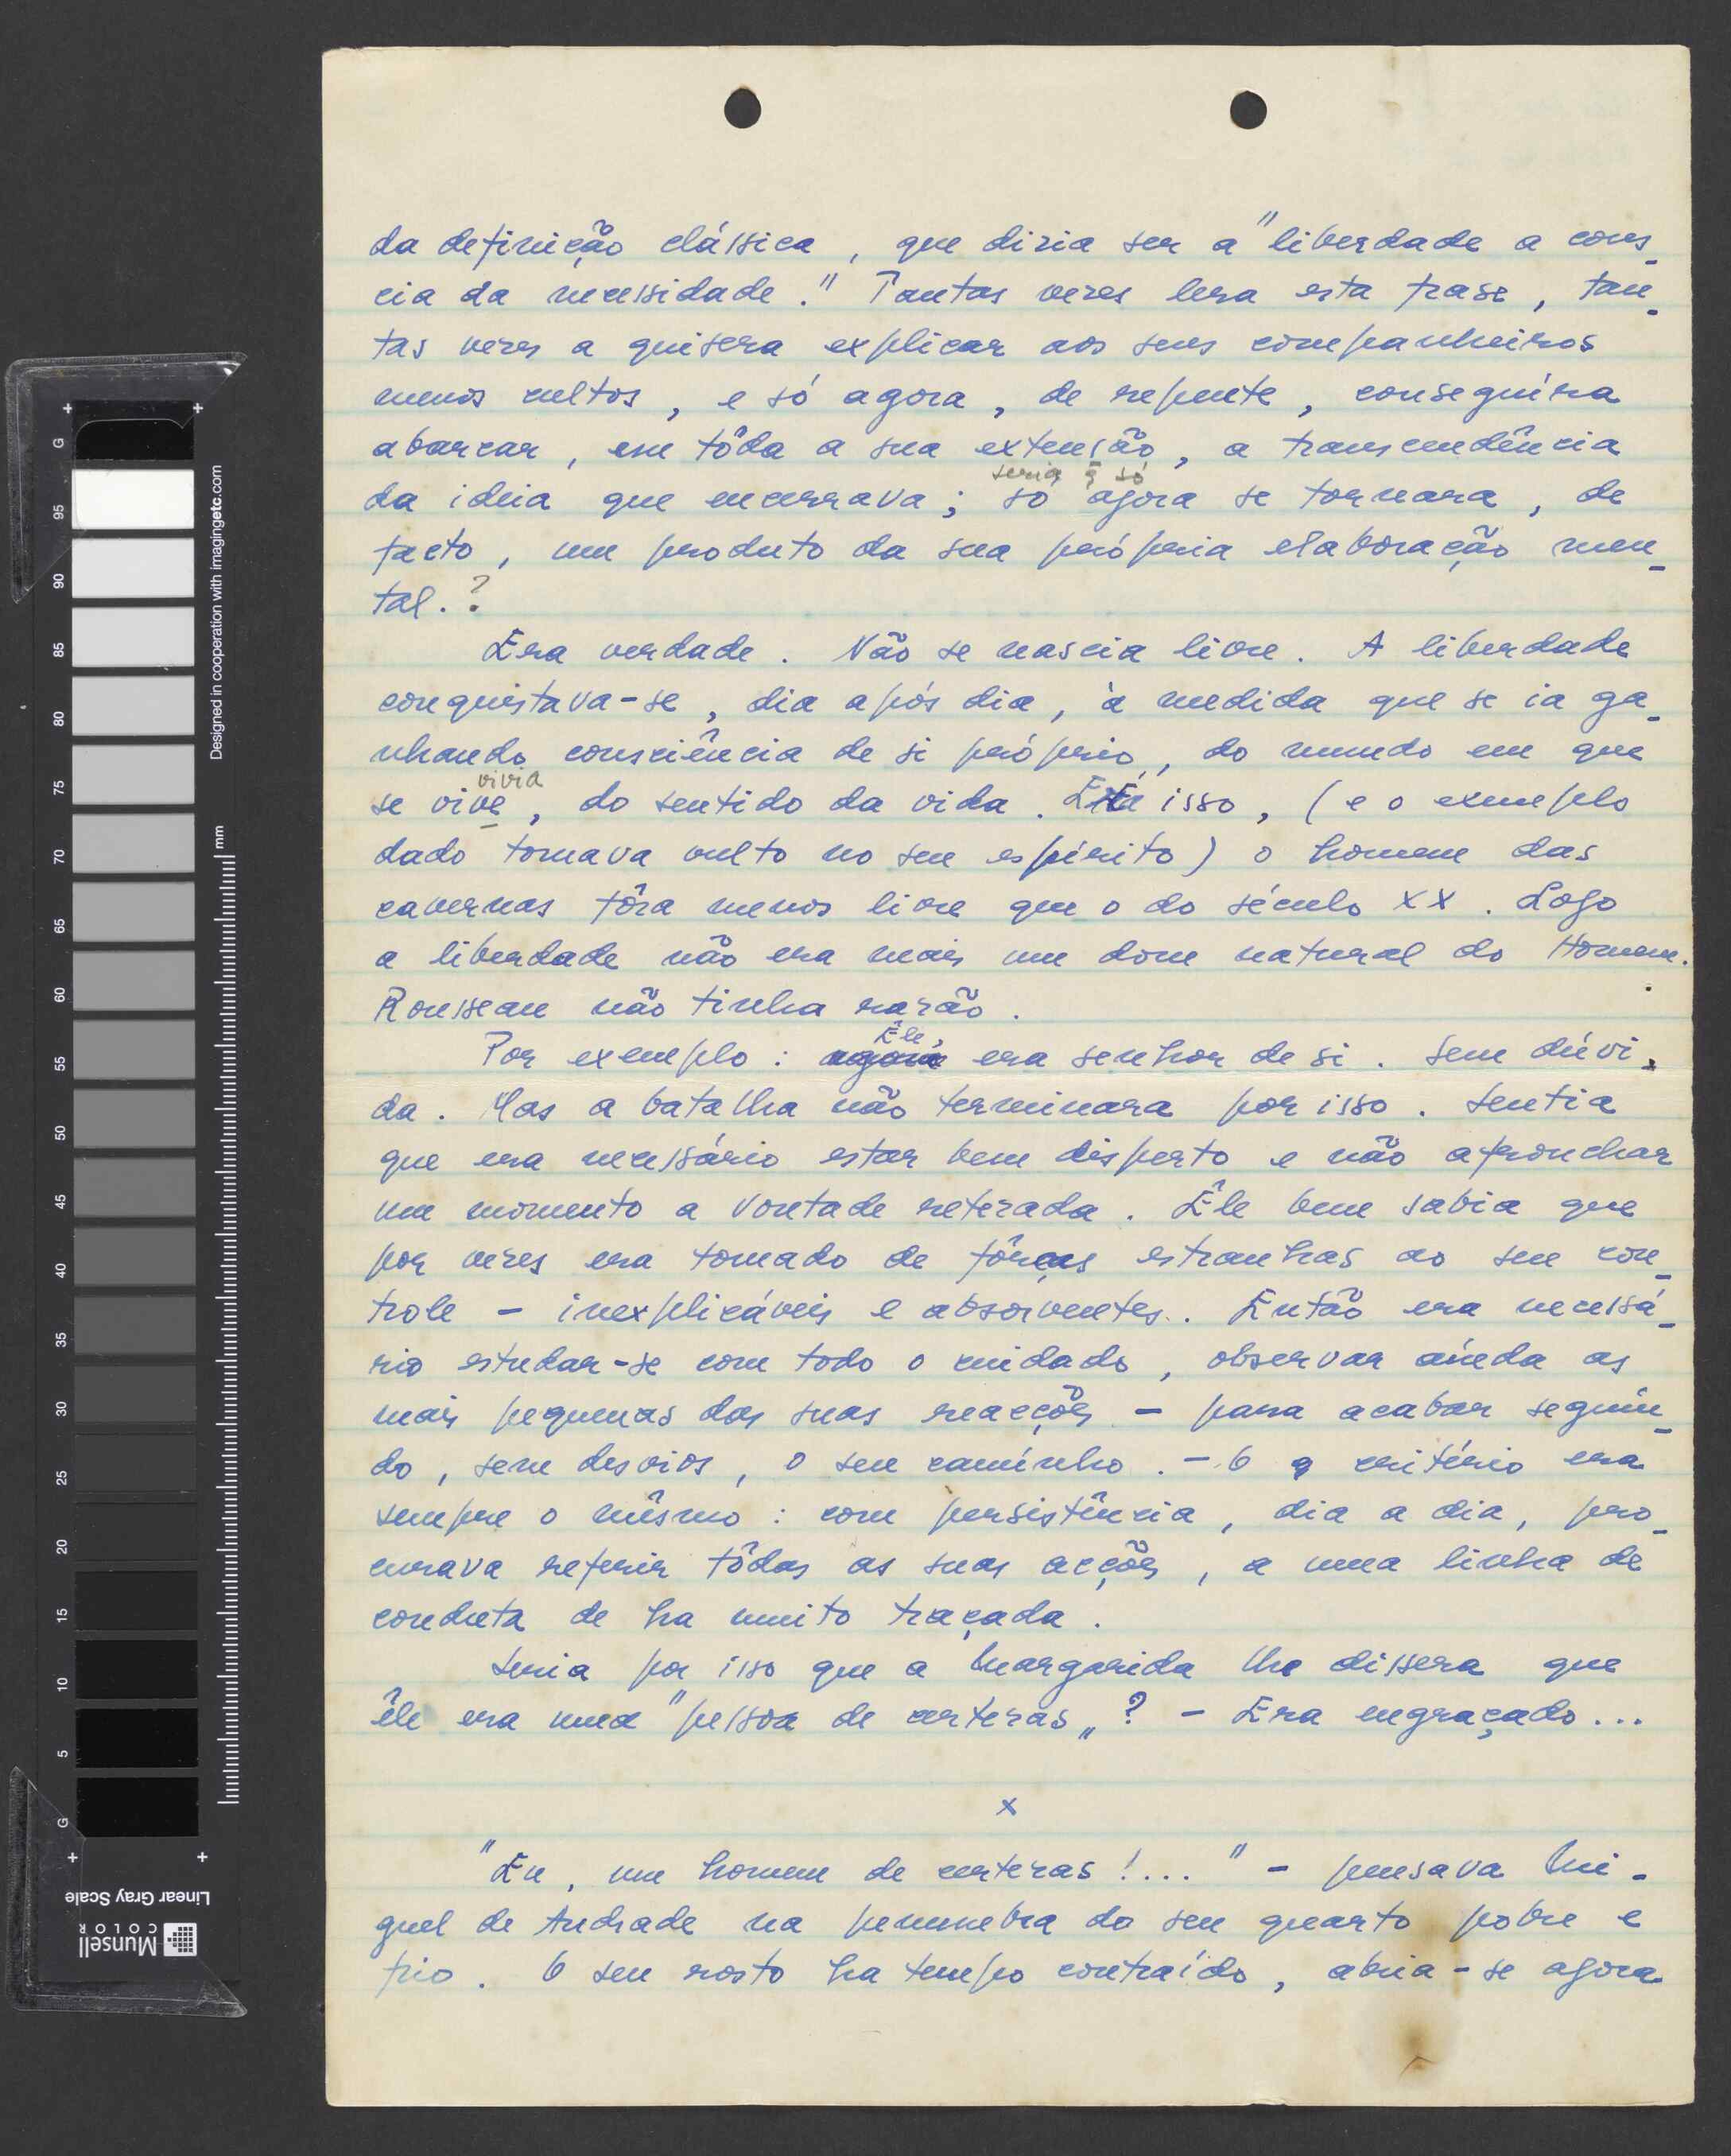 da definição clássica, que dizia ser a "liberdade a cons_
cia da necessidade." Tantas vezes lera esta frase, tan_
tas vezes a quisera explicar aos seus companheiros
menos cultos, e só agora, de repente, conseguíra
abarcar, em tôda a sua extensão, a transcendência
seria q só
da ideia que encerrava; só agora se tornara, de
facto, um produto da sua própria elaboração men_
tal.?
Era verdade. Não se nascia livre. A liberdade
conquistava-se, dia após dia, à medida que se ia ga_
nhando consciência de si próprio, do mundo em que
vivia
se vive, do sentido da vida. E isso, (e o exemplo
dado tomava vulto no seu espírito) o homem das
cavernas fôra menos livre que o do século XX. Logo
a liberdade não era mais um dom natural do Homem.
Rousseau não tinha razão.
Êle,
Por exemplo: agora era senhor de si. Sem dúvi_
da. Mas a batalha não terminara por isso. Sentia
que era necessário estar bem disperto e não afrouchar
um momento a vontade retezada. Êle bem sabia que
por vezes era tomado de fôrças estranhas ao seu con_
trole - inexplicáveis e absorventes. Então era necessá_
rio estudar-se com todo o cuidado, observar aínda as
mais pequenas das suas reacções - para acabar seguin_
do, sem desvios, o seu camínho. - O critério era
sempre o mêsmo: com persistência, dia a dia, pro_
curava referir tôdas as suas acções, a uma linha de
conduta de ha muito traçada.
Seria por isso que a Margarida lhe dissera que
êle era uma "pessoa de certezas„? - Era engraçado...
x
"Eu, um homem de certezas!...." - pensava Mi_
guel de Andrade na penumbra do seu quarto pobre e
frio. O seu rosto ha tempo contraído, abria-se agora
+ +
G
95
90
85
80
75
70
65
60
55
50
45
40
35
30
25
20
15
10
5
G
+ +
Designed in cooperation with imagingetc.com
mm
Linear Gray Scale
Munsell
COLOR